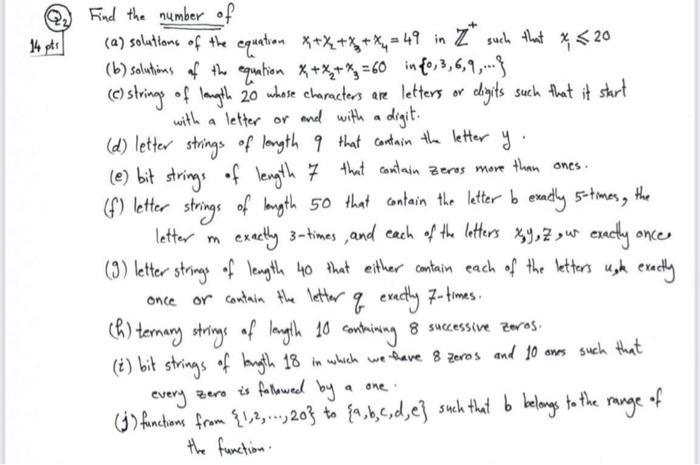 Q2 Find the number of
14 pts (a) solutions of the equation x₁+x₂+x₃+x₄=49 in Z⁺ such that x₁ ≤ 20
(b) solutions of the equation x₁+x₂+x₃=60 in {0,3,6,9,...}
(c) strings of length 20 whose characters are letters or digits such that it start
with a letter or end with a digit.
(d) letter strings of length 9 that contain the letter y.
(e) bit strings of length 7 that contain zeros more than ones.
(f) letter strings of length 50 that contain the letter b exactly 5-times, the
letter m exactly 3-times, and each of the letters x,y,z,w exactly once.
(g) letter strings of length 40 that either contain each of the letters u,k exactly
once or contain the letter q exactly 7-times.
(h) ternary strings of length 10 containing 8 successive zeros.
(i) bit strings of length 18 in which we have 8 zeros and 10 ones such that
every zero is followed by a one.
(j) functions from {1,2,...,20} to {a,b,c,d,e} such that b belongs to the range of
the function.